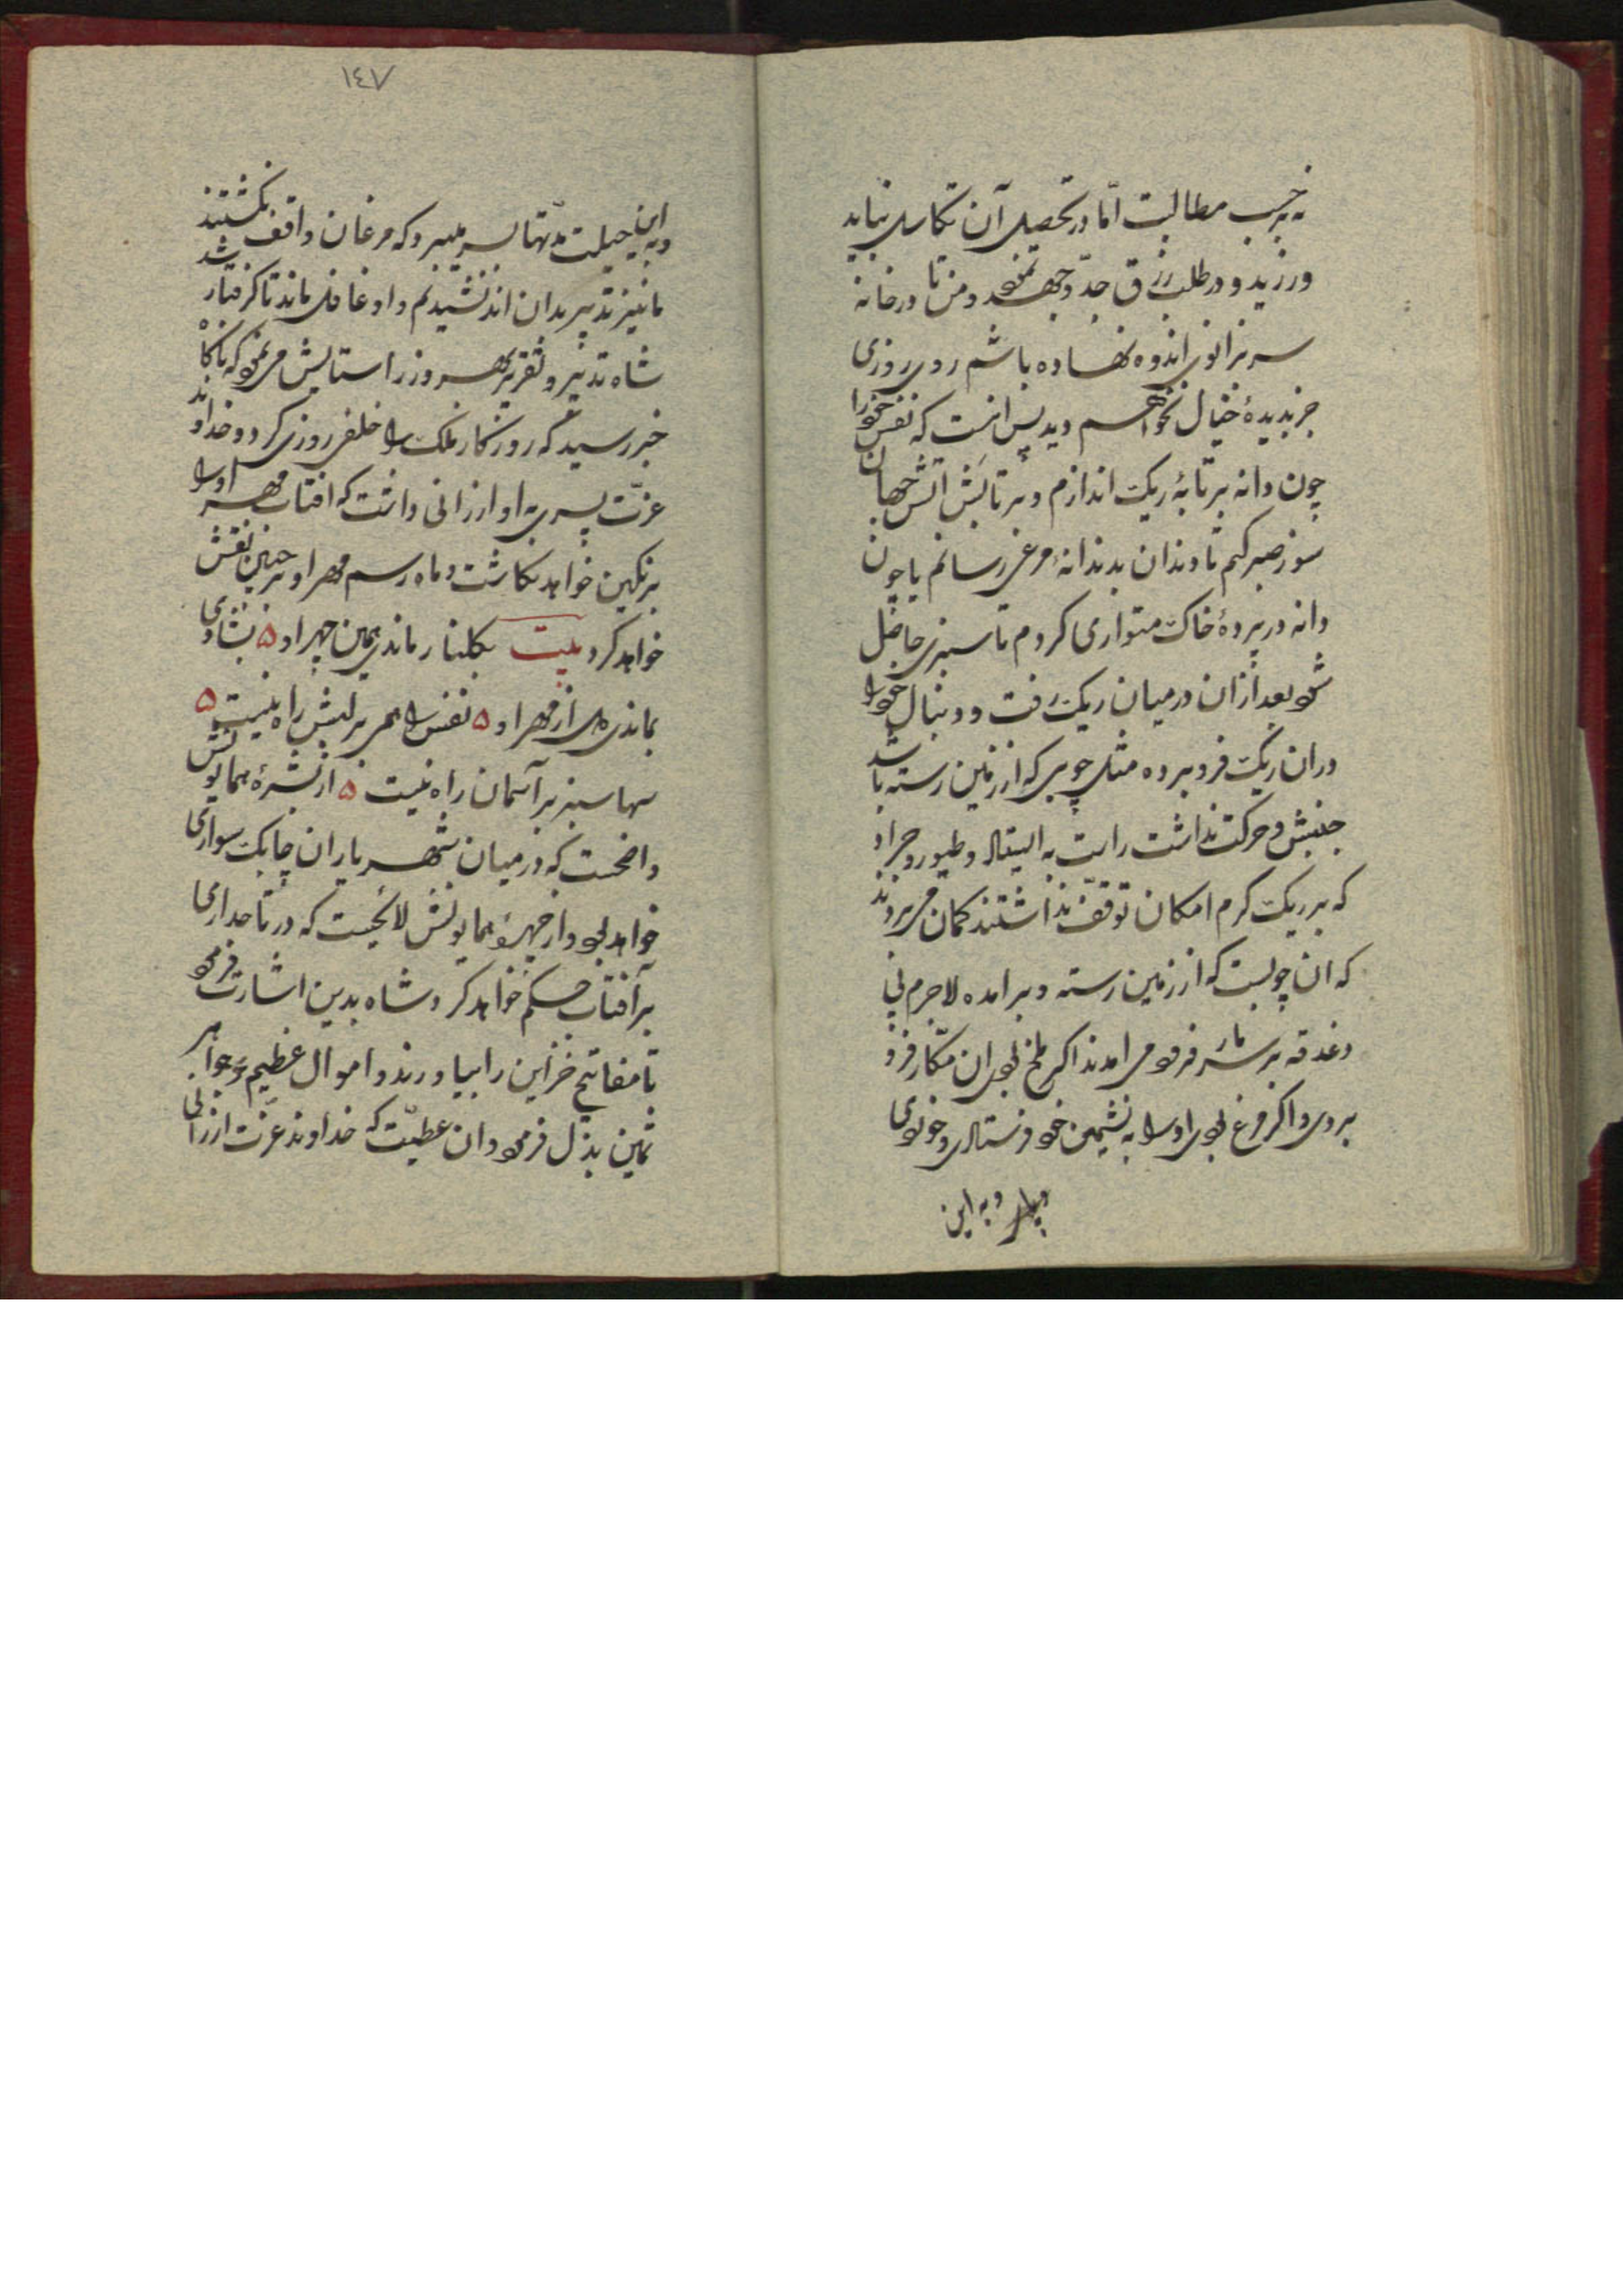 نه بر حسب مطالبت اما در تحصیل آن تکاسل نباید
ورزید و در طلب رزق جد و جهد نمود و من تا در خانه
سر بزانوی اندوه نهاده باشم روی روزی
جز بدیدهٔ خیال نخواهم دید پس انست که نفس خود را
چون دانه بر تابهٔ ریک اندازم و بر تابش اتش جهان
سوز صبر کنم تا دندان بدندانهٔ مرغی رسانم یا چون
دانه در پردهٔ خاک متواری کردم تا سبزی حاصل
شود بعد ازان در میان ریک رفت و دنبال خود را
دران ریک فرو برده مثل چوبی که از زمین رسته باشد
جنبش و حرکت نداشت راست بایستاد و طیور و جراد
که بر ریک کرم امکان توقف نداشتند کمان می بردند
که ان چوبیست که از زمین رسته و برامده لاجرم بی
دغدقه بر سر مار فرو می امدند اکر ملخ بودی ان مکار فرو
بردی و اکر مرغ بودی او را به نشیمن خود فرستادی و خوردی
و به این
۱٤۷
و به این حیلت مدتها بسر میبرد که مرغان واقف نکشتند
ما نیز تدبیر بدان اندیشیدیم و او غافل ماند تا کرفتار شد
شاه تدبیر و تقریر بهروز را ستایش می نمود که ناکاه
خبر رسید که روزکار ملک را خلفی روزی کرد و خداوند
عزت پسری به او ارزانی داشت که افتاب مهر او را
بر نکین خواهد نکاشت و ماه رسم مهر او بر جبین نقش
خواهد کرد بیت بکلنار ماندی همین چهر او ۵ بشادی
بماندی دل از مهر او ۵ نفس را همی بر لبش راه نیست ۵
سها سبز بر آسمان راه نیست ۵ از بشرهٔ همایونش
واضحست که در میان شهریاران چابک سواری
خواهد بود و از چهرهٔ همایونش لائحست که در تاجداری
بر آفتاب حکم خواهد کرد شاه بدین اشارت فرمود
تا مفاتیح خزاین را بیاورند و اموال عظیم و جواهر
ثمین بذل فرمود وان عطیت که خداوند عزت ارزانی